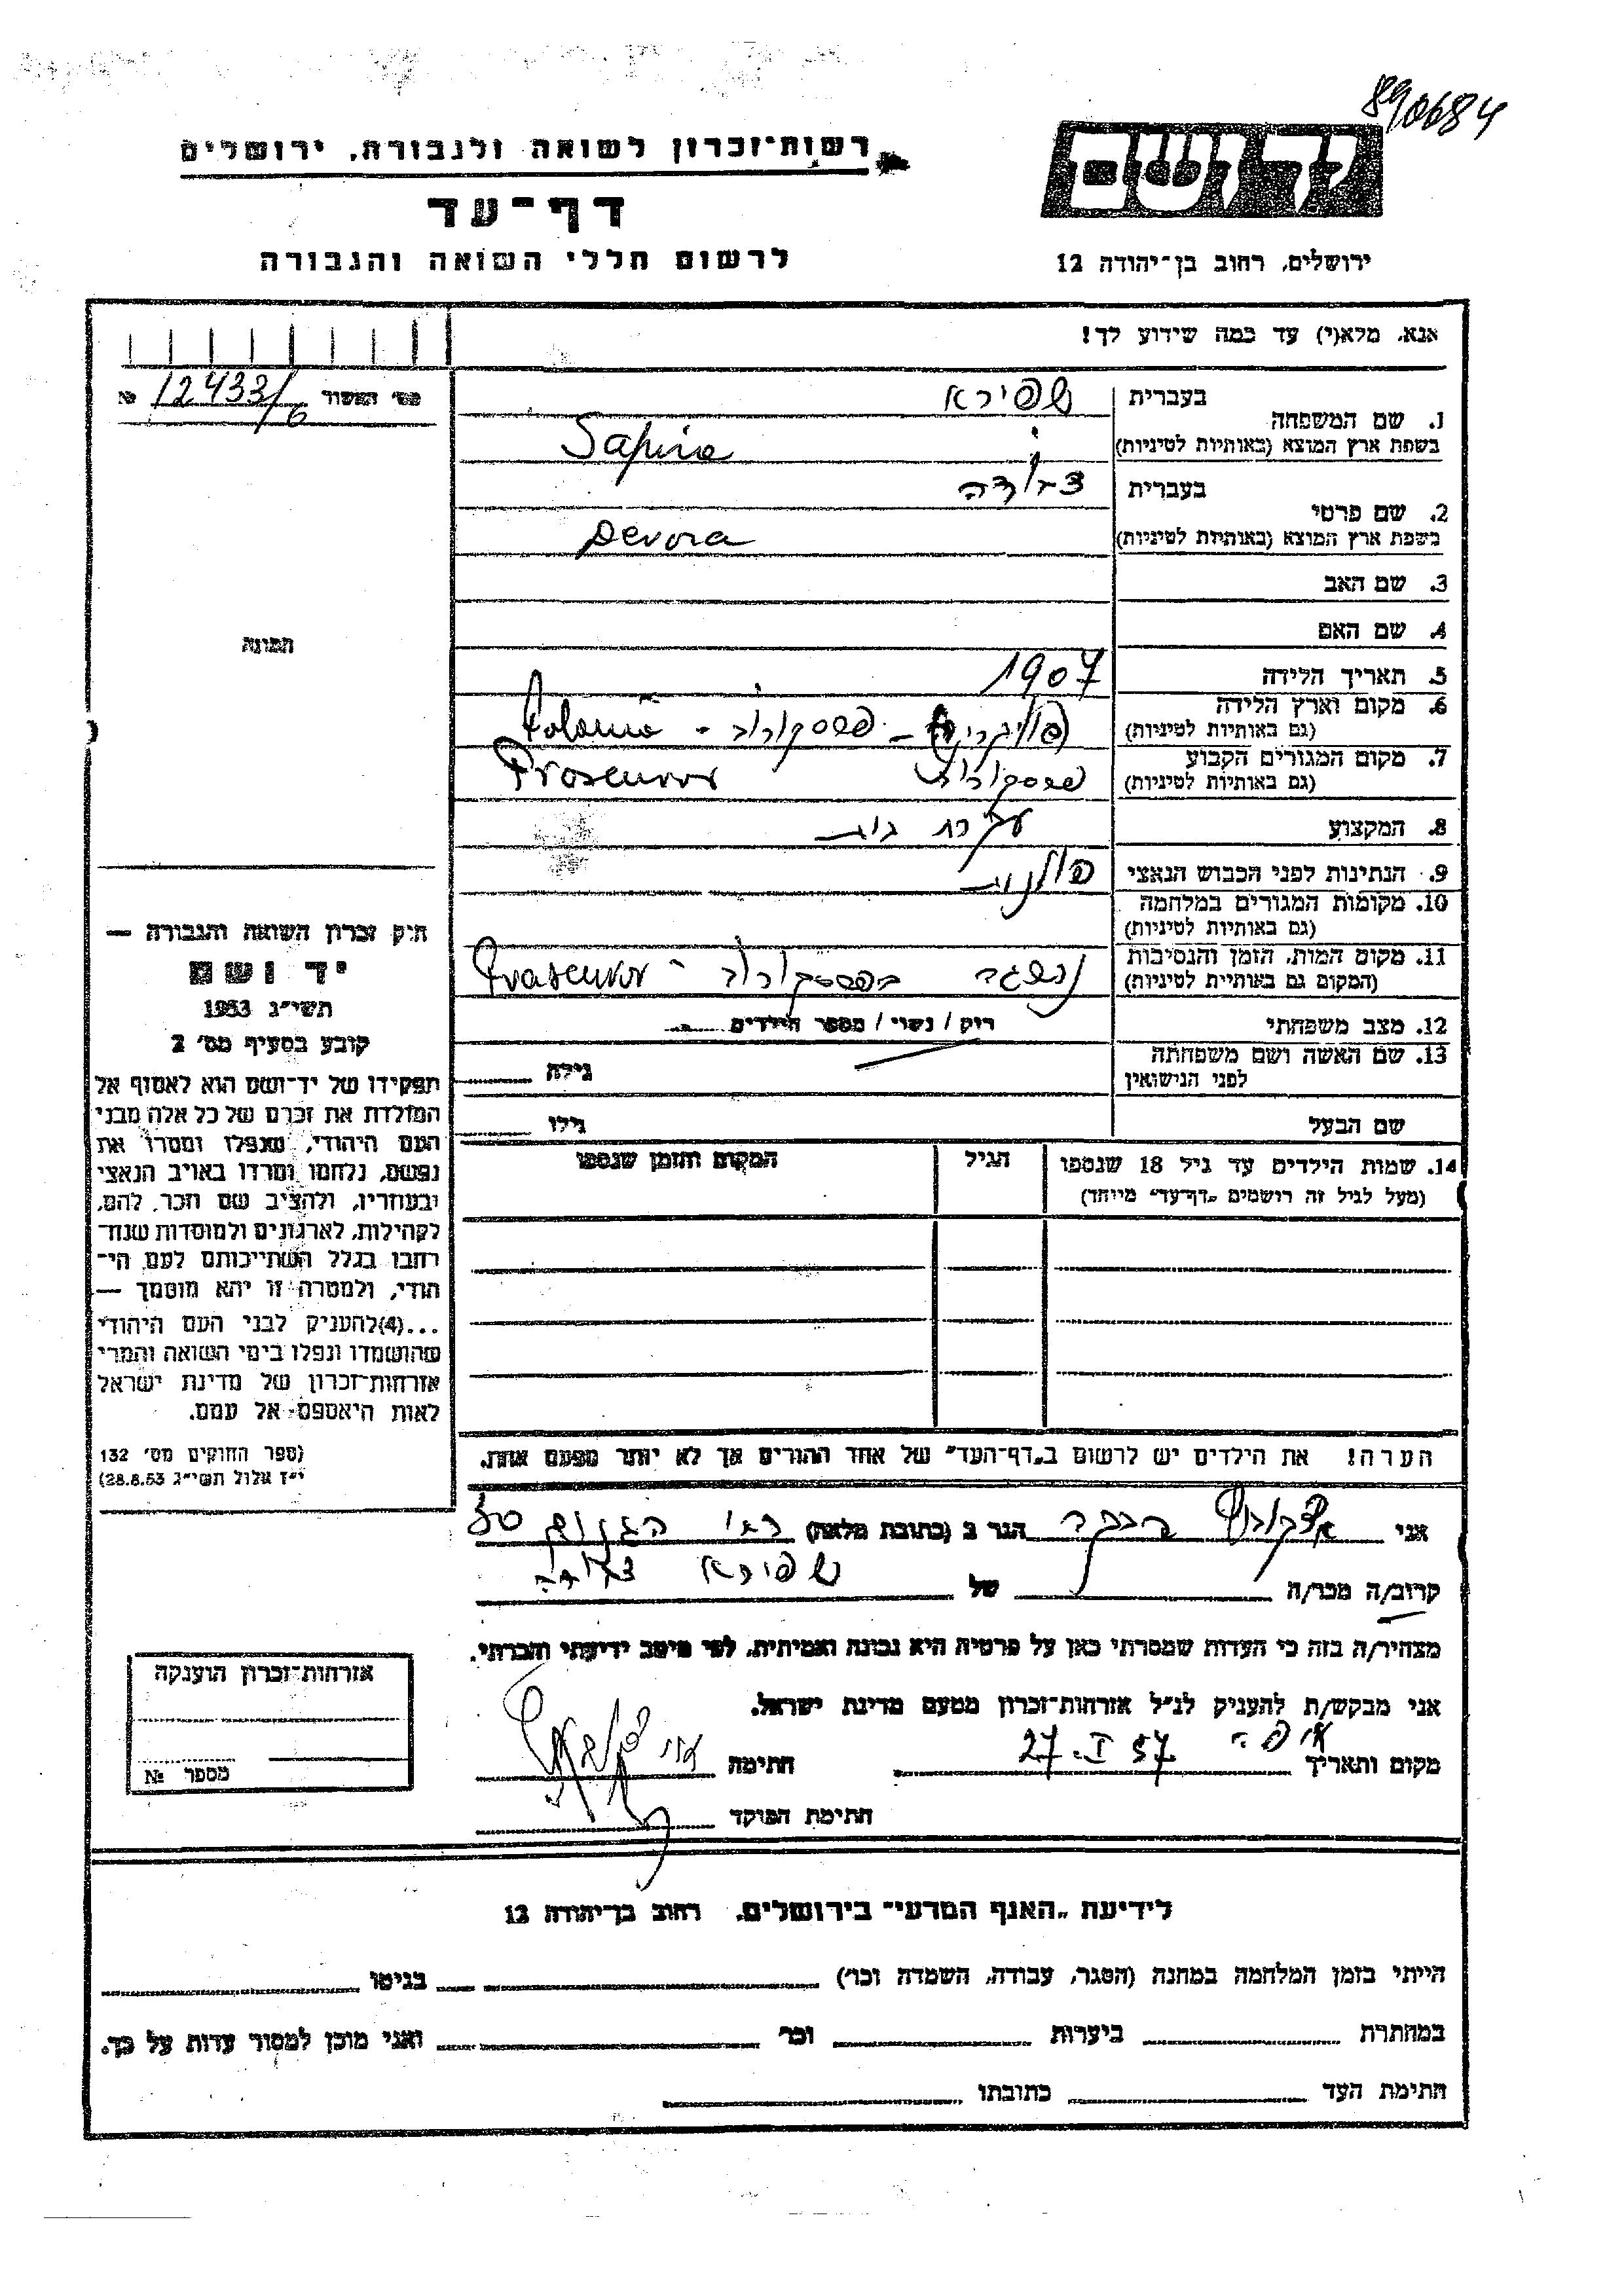 890684
רשות-זכרון לשואה ולגבורה, ירושלים
יד ושם
דף-עד
לרשום חללי השואה והגבורה
ירושלים, רחוב בן-יהודה 12
אנא, מלא(י) עד כמה שידוע לך!
מס' האשור 12433/6 №
בעברית שפירא
1. שם המשפחה
בשפת ארץ המוצא (באותיות לטיניות) Sapira
בעברית דבורה
2. שם פרטי
בשפת ארץ המוצא (באותיות לטיניות) Devora
3. שם האב
4. שם האם
תמונה
5. תאריך הלידה 1907
6. מקום וארץ הלידה
(גם באותיות לטיניות) פרוסקורוב - Polonia
7. מקום המגורים הקבוע
(גם באותיות לטיניות) פרוסקורוב Proscurov
8. המקצוע עקרת בית
9. הנתינות לפני הכבוש הנאצי פולנית
10. מקומות המגורים במלחמה
(גם באותיות לטיניות)
11. מקום המות, הזמן והנסיבות
(המקום גם באותיות לטיניות) בפרוסקורוב - Proscurov
12. מצב משפחתי רוק / נשוי / מספר הילדים
13. שם האשה ושם משפחתה
לפני הנישואין גילה
שם הבעל גילו
14. שמות הילדים עד גיל 18 שנספו הגיל המקום והזמן שנספו
(מעל לגיל זה רושמים "דף-עד" מיוחד)
הערה! את הילדים יש לרשום ב"דף-העד" של אחד ההורים אך לא יותר מפעם אחת.
חוק זכרון השואה והגבורה —
יד ושם
תשי"ג 1953
קובע בסעיף מס' 2
תפקידו של יד-ושם הוא לאסוף אל
המולדת את זכרם של כל אלה מבני
העם היהודי, שנפלו ומסרו את
נפשם, נלחמו ומרדו באויב הנאצי
ובעוזריו, ולהציב שם וזכר להם,
לקהילות, לארגונים ולמוסדות שנח-
רבו בגלל השתייכותם לעם הי-
הודי, ולמטרה זו יהא מוסמך —
...(4)להעניק לבני העם היהודי
שהושמדו ונפלו בימי השואה והמרי
אזרחות-זכרון של מדינת ישראל
לאות היאספם אל עמם.
(ספר החוקים מס' 132
י"ז אלול תשי"ג 28.8.53)
אני רבקה הגר ב (כתובת מלאה)
קרוב/ה מכר/ה של שפירא דבורה
מצהיר/ה בזה כי העדות שמסרתי כאן על פרטיה היא נכונה ואמיתית, לפי מיטב ידיעתי והכרתי.
אני מבקש/ת להעניק לנ"ל אזרחות-זכרון מטעם מדינת ישראל.
מקום ותאריך חיפה 27.I 57 חתימה
חתימת הפוקד
אזרחות-זכרון הוענקה
מספר №
לידיעת "האגף המדעי" בירושלים, רחוב בן-יהודה 12
הייתי בזמן המלחמה במחנה (הסגר, עבודה, השמדה וכו') בגיטו
במחתרת ביערות וכו' ואני מוכן למסור עדות על כך.
חתימת העד כתובתו